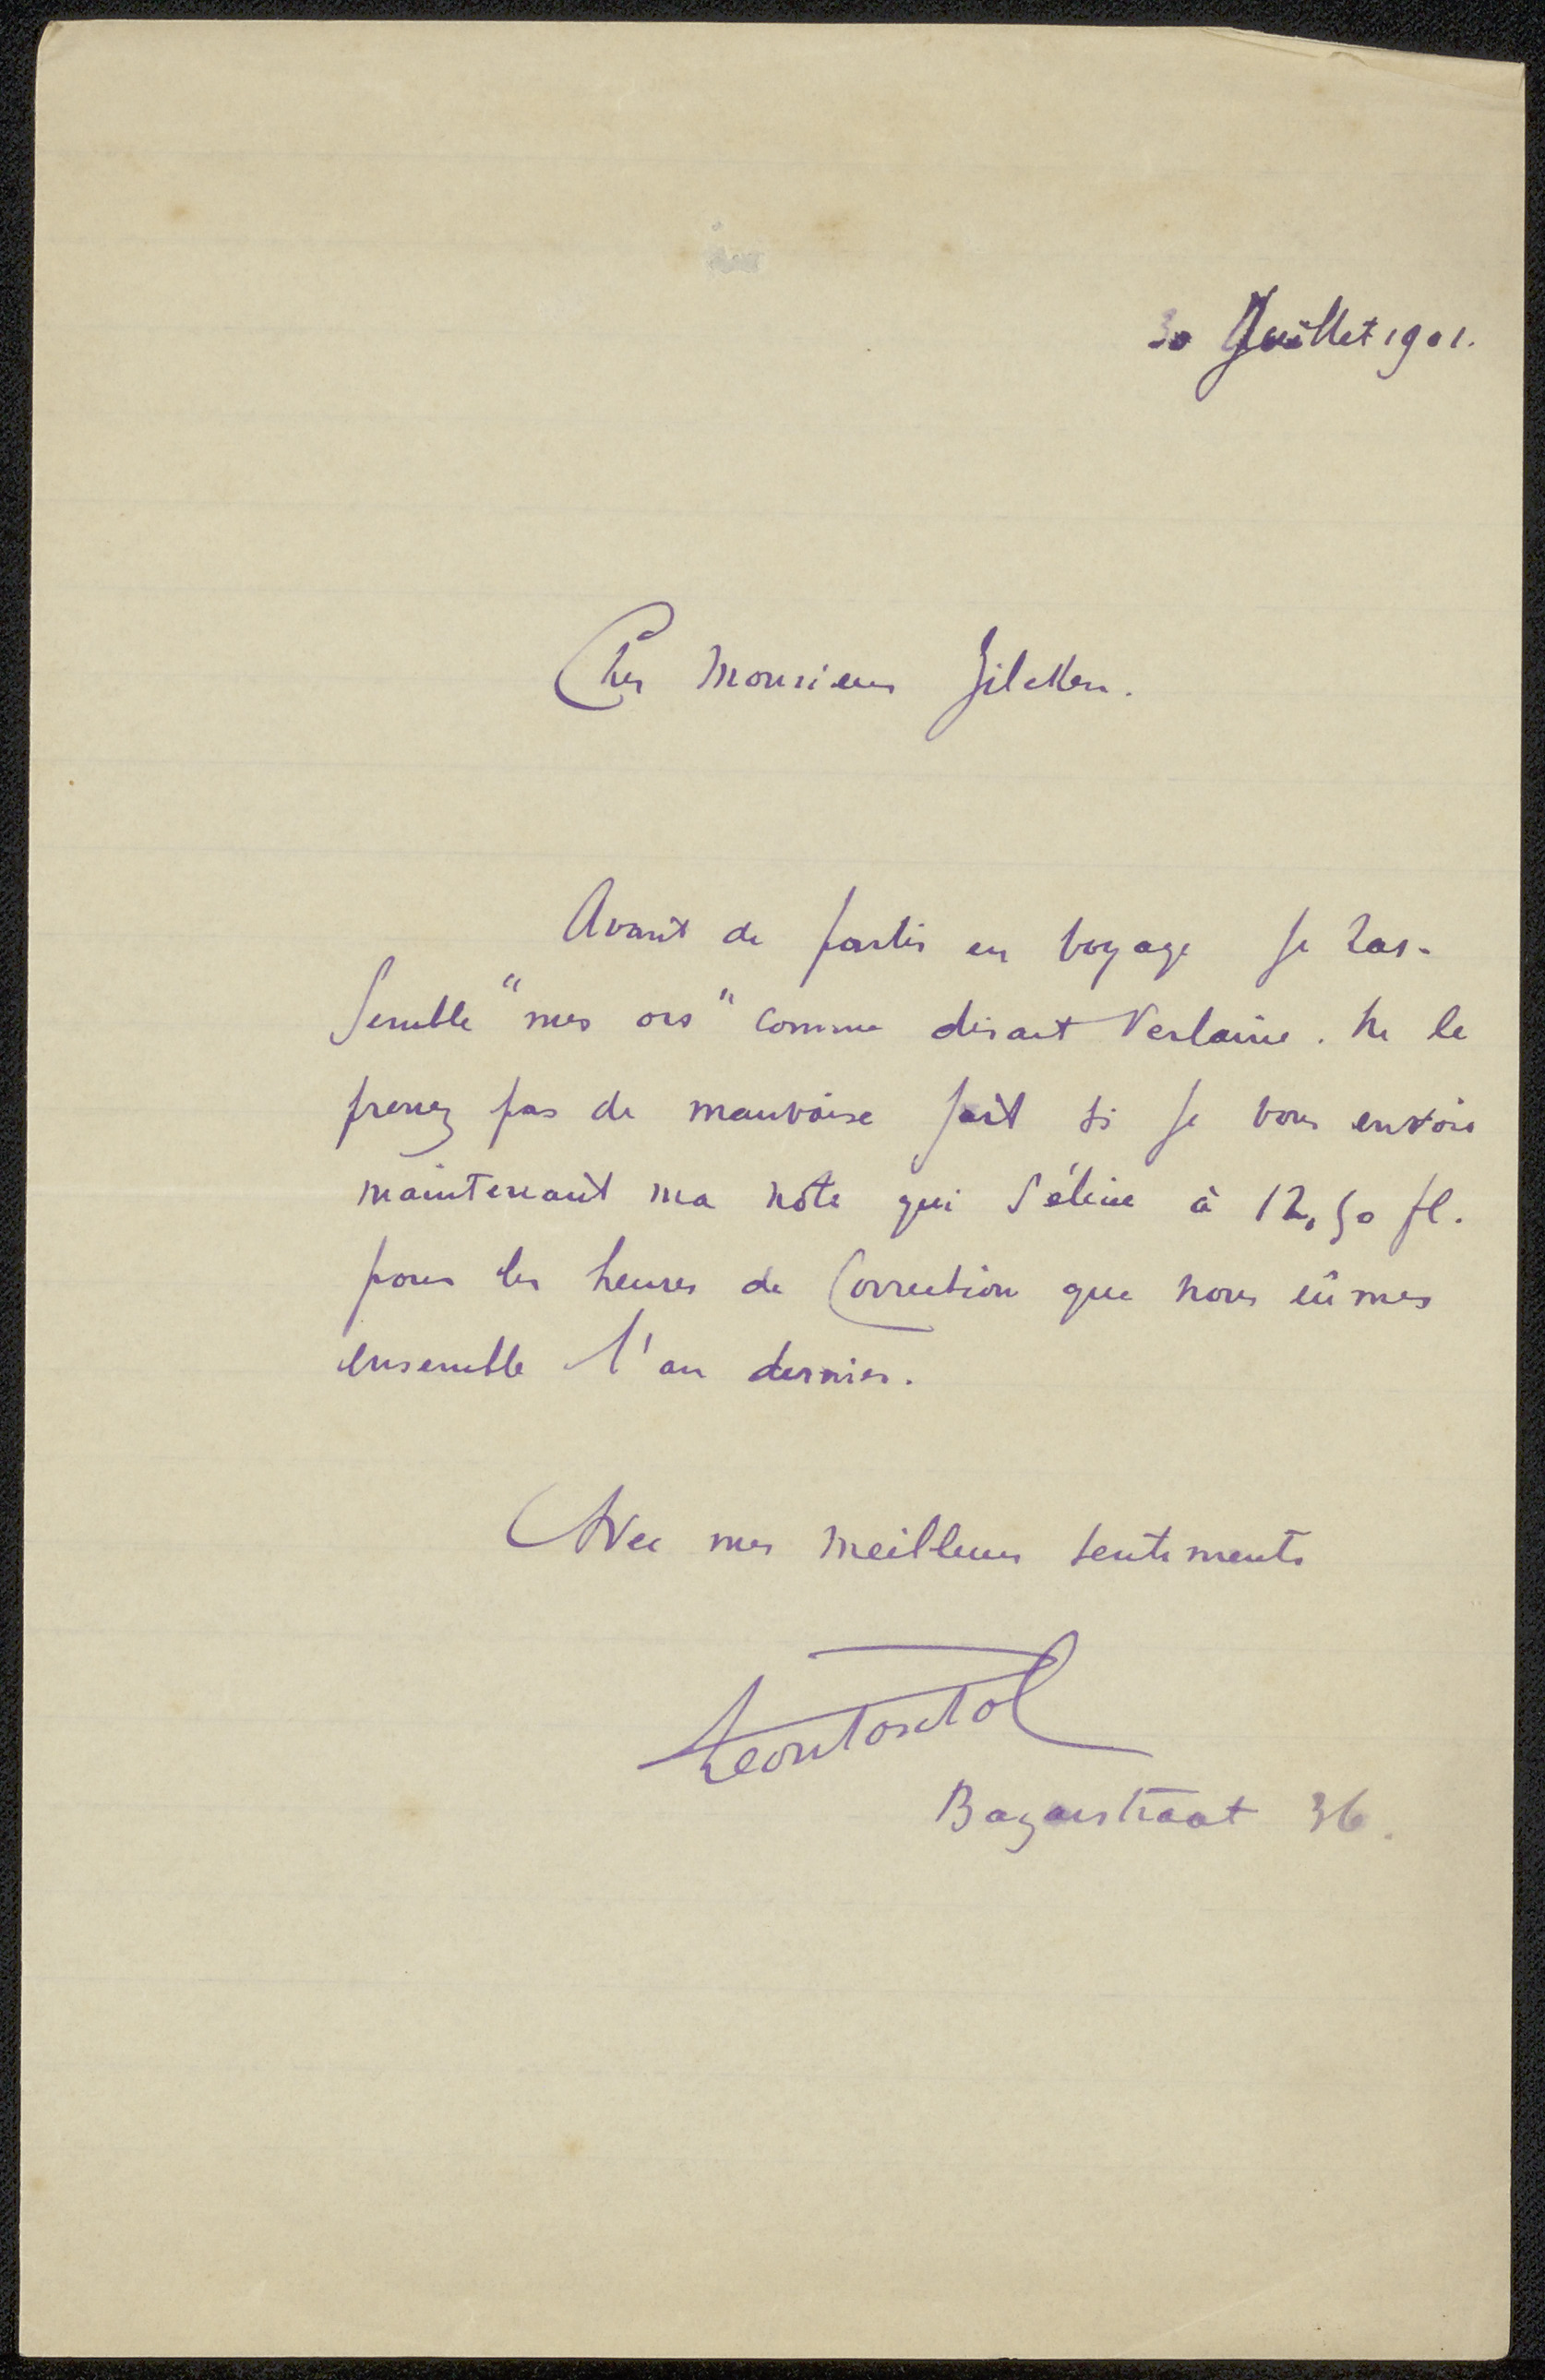 30 Juillet 1901.
Cher Monsieur Zilcken.
Avant de partir en voyage je ras-
semble "mes ors" comme disait Verlaine. Ne le
prenez pas de mauvaise part si je vous envoie
maintenant ma note qui s'élève à 12,50 fl.
pour les heures de correction que nous eûmes
ensemble l'an dernier.
Avec mes meilleurs sentiments
Bazarstraat 36.